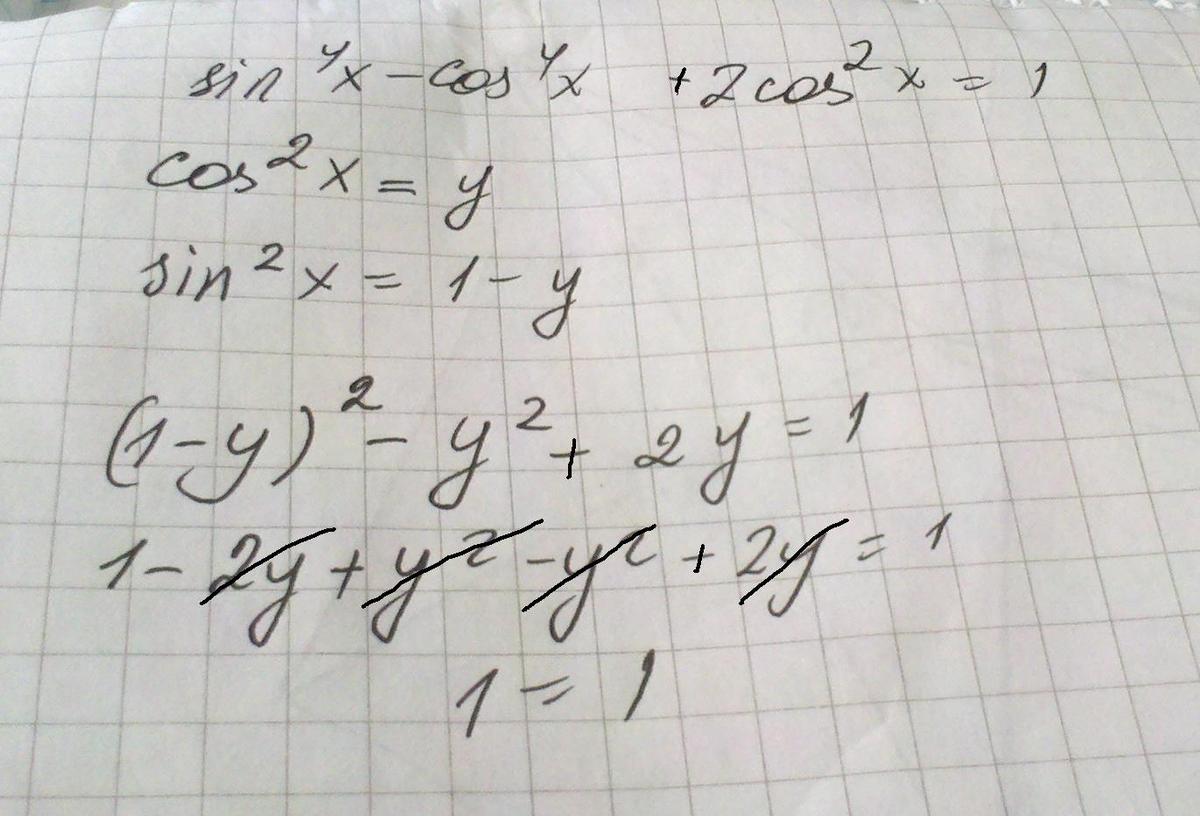 sin⁴x - cos⁴x + 2cos²x = 1
cos²x = y
sin²x = 1 - y
(1 - y)² - y² + 2y = 1
1 - 2y + y² - y² + 2y = 1
1 = 1